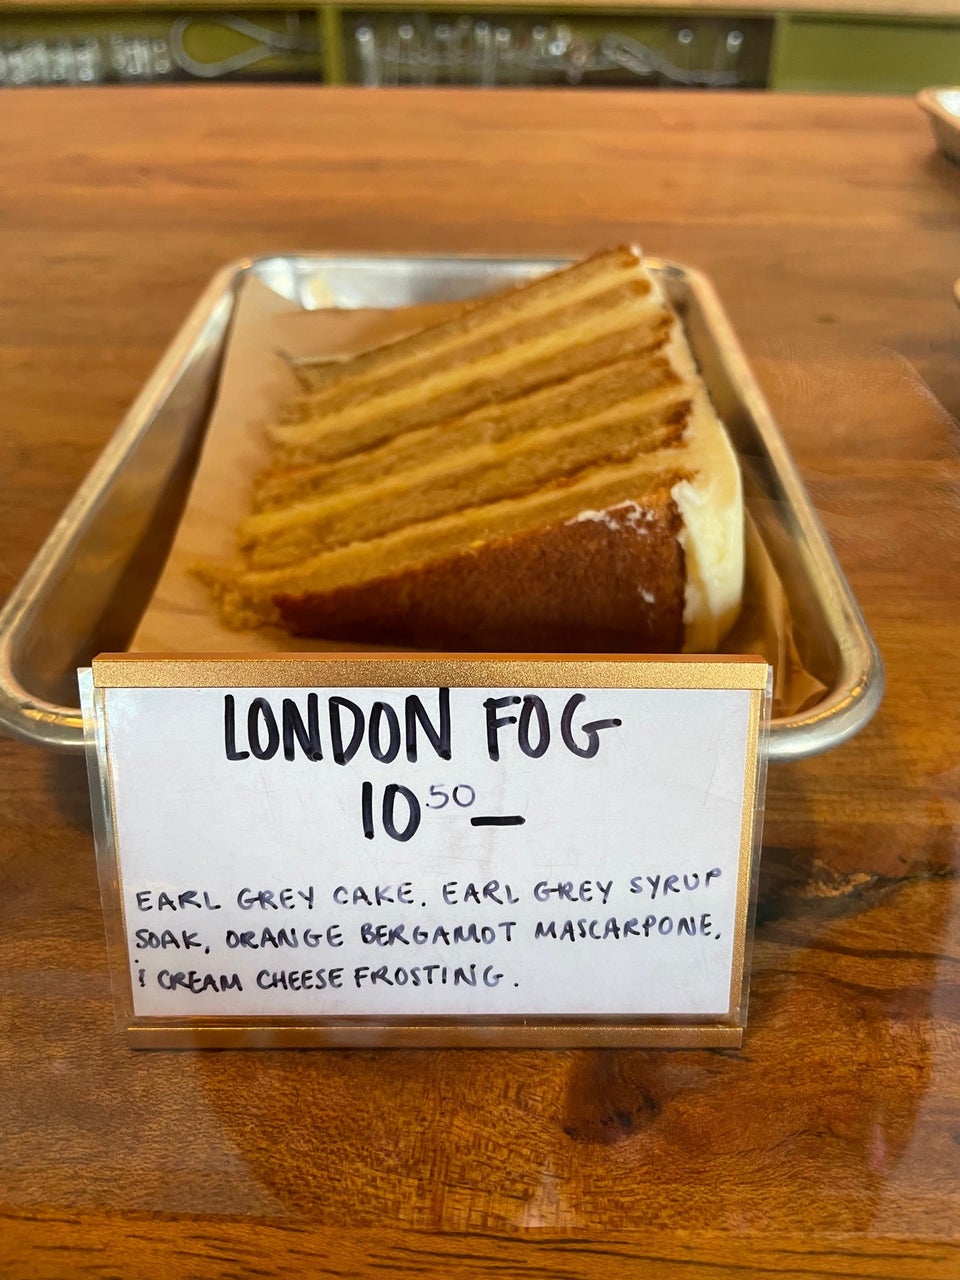 LONDON FOG
10.50 —
EARL GREY CAKE. EARL GREY SYRUP
SOAK, ORANGE BERGAMOT MASCARPONE,
& CREAM CHEESE FROSTING.